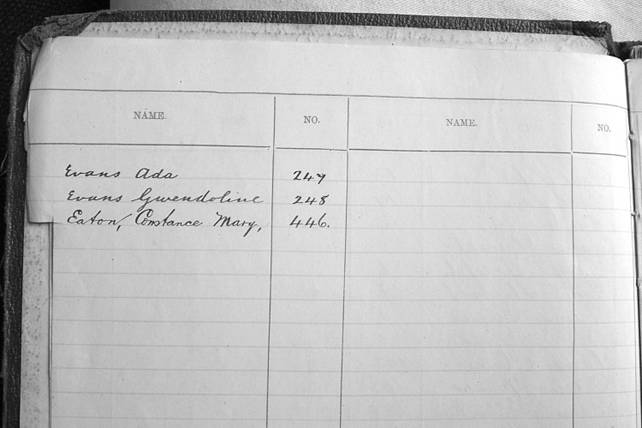 NAME. NO. NAME. NO.
Evans Ada 247
Evans Gwendoline 248
Eaton, Constance Mary, 446.